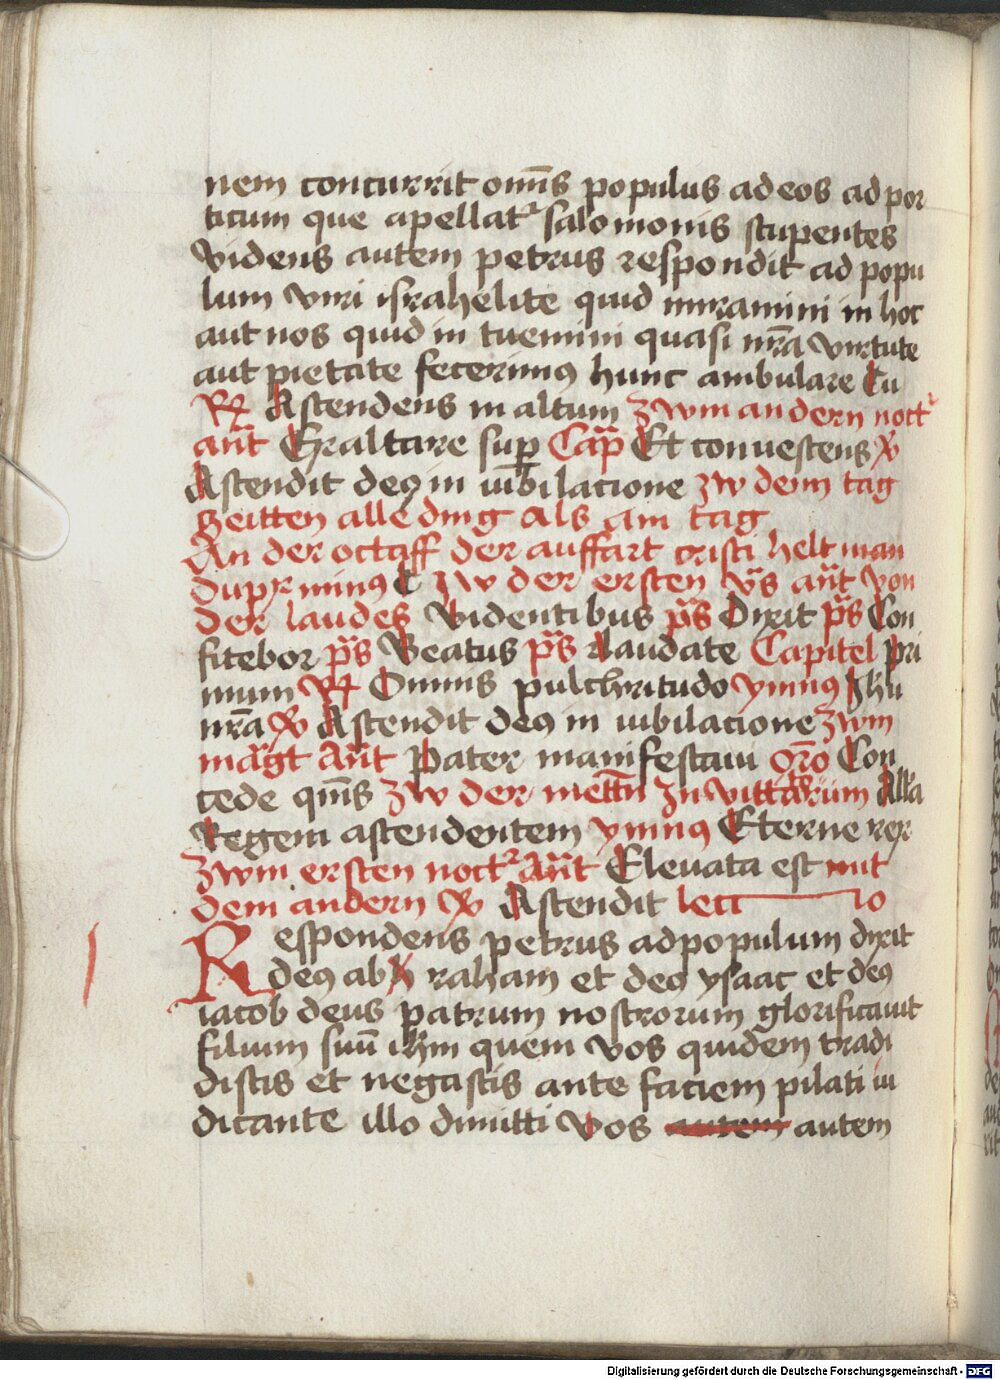 nem concurrit om̄s populus ad eos ad por
ticum que apellatᷣ salomonis stupentes
videns autem petrus respondit ad popu
lum viri israhelite quid miramini in hoc
aut nos quid in tuemini quasi nr̄a virtute
aut pietate fecerimꝰ hunc ambulare Cu
℟ Ascendens in altum zwm andern noctᷣ
an̄t Exaltare sup Cap̄ Et convescens ℣
Ascendit deꝰ in iubilacione zw dem tag
zeitten alle ding als am tag
An der octaff der auffart cristi helt man
duplx minus C zw der ersten v̄s an̄t von
der laudes Videntibus p̄s Dixit p̄s Con
fitebor p̄s Beatus p̄s laudate Capitel pri
mum ℟ Omnis pulchritudo ymnꝰ Jhu
nr̄a ℣ Ascendit deꝰ in iubilacione zwm
mag̅t an̄t Pater manifestaui or̄o Con
cede qm̄s zw der mett̄n Inuittatorium All̄a
Regem ascendentem ymnꝰ Eterne rex
zwm ersten noctᷣ an̄t Eleuata est mit
dem andern ℣ Ascendit lecc io
Respondens petrus ad populum dixit
deꝰ ab raham et deꝰ ysaac et deꝰ
iacob deus patrum nostrorum glorificauit
filium suū ih̄m quem vos quidem tradi
distis et negastis ante faciem pilati iu
dicante illo dimitti vos autem autem
Digitalisierung gefördert durch die Deutsche Forschungsgemeinschaft - DFG